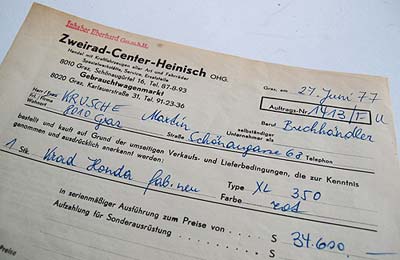 Inhaber Eberhard
Zweirad-Center-Heinisch OHG.
Handel mit Kraftfahrzeugen aller Art und Fahrräder
Spezialwerkstätte, Service, Ersatzteile
8010 Graz, Schönaugürtel 16, Tel. 87-8-93
Gebrauchtwagenmarkt
8020 Graz, Karlauerstraße 31, Tel. 91-23-36
Graz, am 27. Juni 77
Auftrags-Nr. 1413/I-U
Herr / Frau / Firma KRUSCHE Martin Beruf Buchhändler
Wohnort 8010 Graz Straße Schönaugasse 68 Telephon
selbständiger
Unternehmer als
bestellt und kauft auf Grund der umseitigen Verkaufs- und Lieferbedingungen, die zur Kenntnis
genommen und ausdrücklich anerkannt werden:
1 Stk. Krad Honda fab. neu Type XL 350
Farbe rot
in serienmäßiger Ausführung zum Preise von S 34.600.—
Aufzahlung für Sonderausrüstung S
Preise